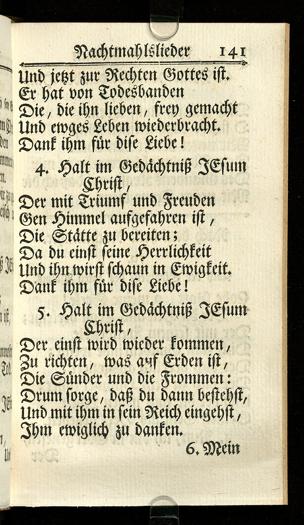 Nachtmahlslieder 141
Und jetzt zur Rechten Gottes ist.
Er hat von Todesbanden
Die, die ihn lieben, frey gemacht
Und ewges Leben wiederbracht.
Dank ihm für dise Liebe!
4. Halt im Gedächtniß JEsum
Christ,
Der mit Triumf und Freuden
Gen Himmel aufgefahren ist,
Die Stätte zu bereiten;
Da du einst seine Herrlichkeit
Und ihn wirst schaun in Ewigkeit.
Dank ihm für dise Liebe!
5. Halt im Gedächtniß JEsum
Christ,
Der einst wird wieder kommen,
Zu richten, was auf Erden ist,
Die Sünder und die Frommen:
Drum sorge, daß du dann bestehst,
Und mit ihm in sein Reich eingehst,
Ihm ewiglich zu danken.
6. Mein